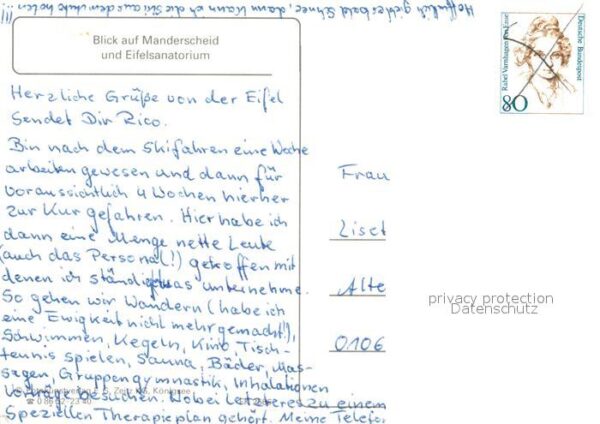 Hoffentlich gibt es bald Schnee, dann kann ich die Ski aus dem holen !!!
Blick auf Manderscheid
und Eifelsanatorium
Herzliche Grüße von der Eifel
Sendet Dir Rico.
Bin nach dem Skifahren eine Woche
arbeiten gewesen und dann für
voraussichtlich 4 Wochen hierher
zur Kur gefahren. Hier habe ich
dann eine Menge nette Leute
(auch das Personal!) getroffen mit
denen ich ständig etwas unternehme.
So gehen wir Wandern (habe ich
eine Ewigkeit nicht mehr gemacht!),
Schwimmen, Kegeln, Kino, Tisch-
tennis spielen, Sauna, Bäder, Mas-
sagen, Gruppengymnastik, Inhalationen
Vorträge besuchen. Wobei Letzteres zu einem
Speziellen Therapieplan gehört. Meine Telefo
Deutsche Bundespost
80
Frau
Liset
Alte
0106
privacy protection
Datenschutz